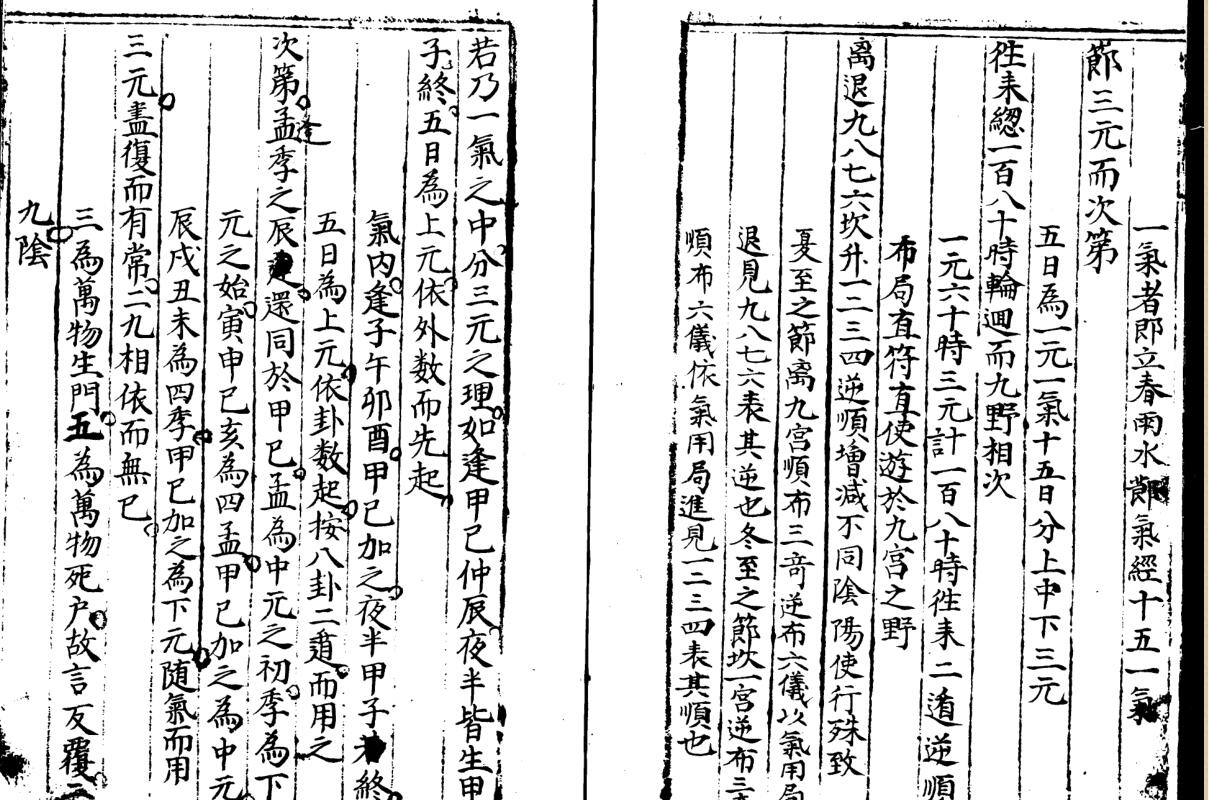 一氣者即立春雨水節氣經十五一氣
節三元而次第
五日為一元一氣十五日分上中下三元
徃耒緫一百八十時輪迴而九野相次
一元六十時三元計一百八十時徃耒二遁逆順
布局直符直使遊於九宮之野
离退九八七六坎升一二三四逆順增減不同陰陽使行殊致
夏至之節离九宮順布三竒逆布六儀以氣用局
退見九八七六表其逆也冬至之節坎一宮逆布三
順布六儀依氣用局進見一二三四表其順也
若乃一氣之中分三元之理如逢甲己仲辰夜半皆生甲
子終五日為上元依外数而先起
氣内逢子午卯酉甲己加之夜半甲子終
五日為上元依卦数起按八卦二遁而用之
次第孟逢季之辰還同於甲己孟為中元之初季為下
元之始寅申巳亥為四孟甲己加之為中元
辰戌丑未為四季甲己加之為下元随氣而用
三元盡復而有常二九相依而無已
三為萬物生門五為萬物死户故言反覆二
九陰